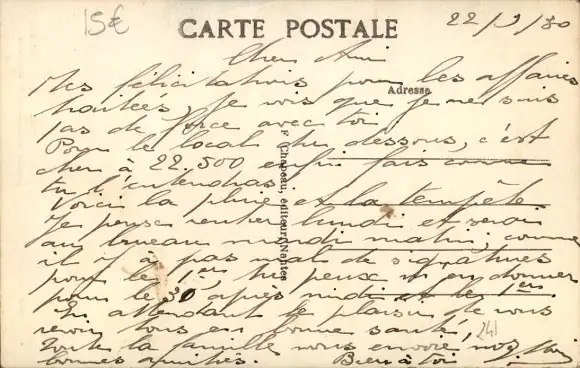 15€
CARTE POSTALE
22/9/30
Cher Ami
Mes félicitations pour les affaires
traitées, je vois que je ne suis
pas de force avec toi
Adresse
Pour le local du dessous, c'est
cher à 22.500 enfin fais comme
tu l'entendras.
Voici la pluie et la tempête
Je pense rentrer lundi et serai
au bureau mardi matin, comme
il y a pas mal de signatures
pour le 1er, tu peux m'en donner
pour le 30 après midi et le 1er.
En attendant le plaisir de vous
revoir tous en bonne santé,
toute la famille vous envoie nos
bonnes amitiés. Bien à toi
F. Chapeau, éditeur, Nantes
241